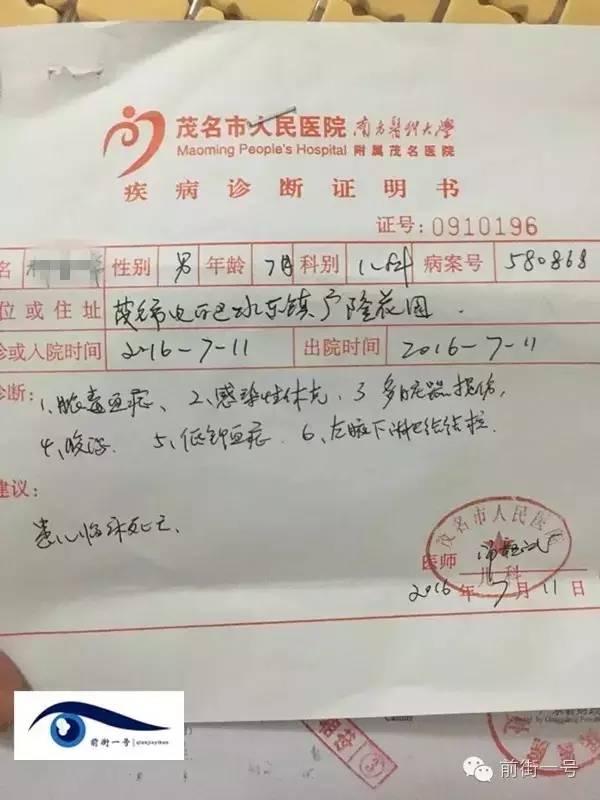 茂名市人民医院 南方医科大学
Maoming People's Hospital 附属茂名医院
疾病诊断证明书
证号:0910196
名 性别 男 年龄 7月 科别 儿科 病案号 580868
位或住址 茂名市电白区水东镇广隆花园.
诊或入院时间 2016-7-11 出院时间 2016-7-11
诊断: 1、脓毒血症、 2、感染性休克, 3 多脏器损伤,
4、腹泻. 5、低钾血症. 6、左腋下淋巴结结核.
建议:
患儿临床死亡.
茂名市人民医院
儿科
医师
2016年7月11日
前街一号 qianjieyihao
前街一号